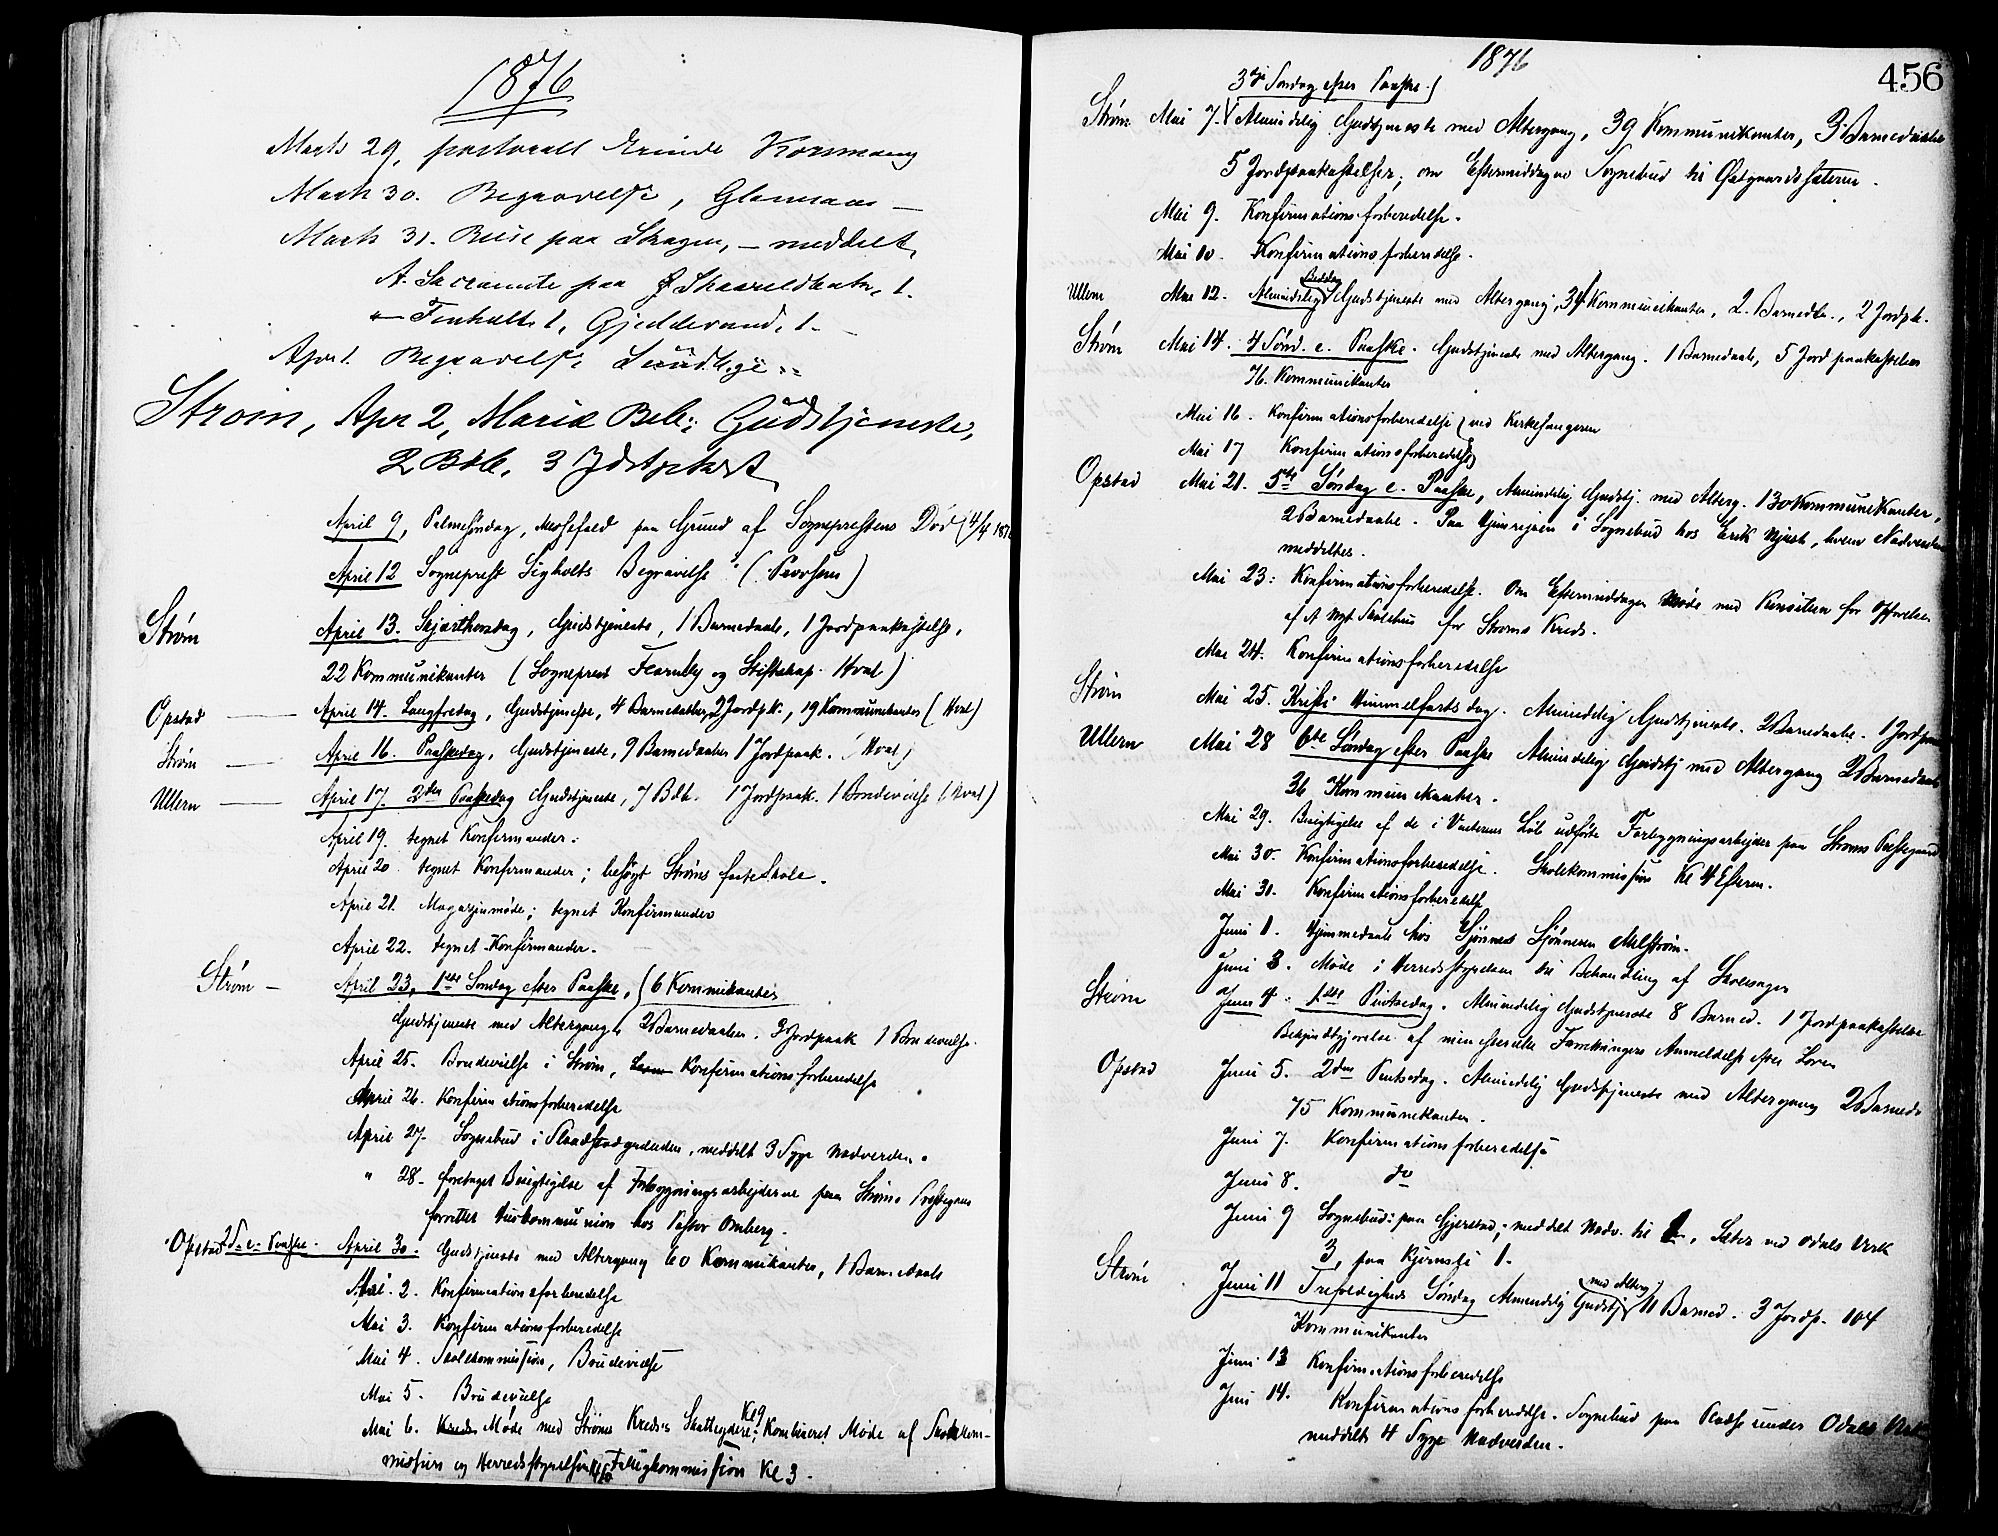 1876
Marts 29, pastorall Erinde Kornmoung
Marts 30. Begravelse,
Marts 31. Reise paa Skogen, – meddelt
A. Sacramente paa Skaareldbatn, 1.
Finholt 1, Gjeddevand, 1.
Apr 1. Begravelse
Strøm, Apr 2, Mariæ Beb: Gudstjeneste,
2 Bdb, 3
April 9, Palmesøndag, Messefald paa Grund af Sogneprestens Død (4/4 187
April 12 Sogneprest Sigholts Begravelse (Provsten)
Strøm April 13. Skjærthorsdag, Gudstjeneste, 1 Barnedaab, 1 Jordpaakastelse,
22 Kommunikanter (Sogneprest Fearnley og Stiftskap. Hval)
Opstad April 14. Langfredag, Gudstjeneste, 4 Barnedaaber, 2 Jordpk., 19 Kommunikanter (Hval)
Strøm April 16. Paaskedag, Gudstjeneste, 9 Barnedaaber 1 Jordpaak. (Hval)
Ullern April 17. 2den Paaskedag Gudstjeneste, 7 Bdb. 1 Jordpaak. 1 Brudevielse (Hval)
April 19. tegnet Konfirmander.
April 20. tegnet Konfirmander; besøgt Strøms faste Skole.
April 21. Magazinmøde; tegnet Konfirmander
April 22. tegnet Konfirmander.
Strøm – April 23, 1ste Søndag efter Paaske, 6 Kommikanter
Gudstjeneste med Altergang, 2 Barnedaaber. 3 Jordpaak 1 Brudevielse.
April 25. Brudevielse i Strøm, Konfirmationsforberedelse
April 26. Konfirmationsforberedelse
April 27. Sognebud i, meddelt 3 Syge Nadverden.
" 28. foretaget Besigtigelse af Forbygningsarbejderne paa Strøms Prestegaard
forrettet Huskommunion hos Pastor Omberg.
Opstad 2 S. e. Paaske. April 30. Gudstjeneste med Altergang 60 Kommikanter, 1 Barnedaab
Mai 2. Konfirmationsforberedelse
Mai 3. Konfirmationsforberedelse
Mai 4. Skolekommission, Brudevielse
Mai 5. Brudevielse
Mai 6. Møde med Strøms Kredses Skatteydere Kl 9; Kombineret Møde af Skolekom-
mission og Herredsstyrelsen, Fattigkommission Kl 3.
1876
456
3die Søndag efter Paaske.
Strøm Mai 7. Almindelig Gudstjeneste med Altergang, 39 Kommunikanter, 3 Barnedaabe
5 Jordpaakastelser; om Eftermiddagen Sognebud til Ødegaardssæteren.
Mai 9. Konfirmationsforberedelse.
Mai 10. Konfirmationsforberedelse.
Ullern Mai 12. Almindelig Bededag Gudstjeneste med Altergang, 39 Kommunikanter, 2 Barnedb., 2 Jordpk.
Strøm Mai 14. 4 Sønd. e. Paaske. Gudstjeneste med Altergang. 1 Barnedaab, 5 Jordpaakastelser
76 Kommunikanter
Mai 16. Konfirmationsforberedelse ved Kirkesangeren
Mai 17 Konfirmationsforberedelse
Opstad Mai 21. 5te Søndag e. Paaske, Almindelig Gudstj. med Alterg. 130 Kommunikanter,
2 Barnedaabe. Paa Hjemreisen i Sognebud hos Erik, hvem Nadverden
meddeltes.
Mai 23: Konfirmationsforberedelse. Om Eftermiddagen Møde med for Opførelse
af et Nyt Skolehus for Strøms Kreds.
Mai 24. Konfirmationsforberedelse
Strøm Mai 25. Kristi Himmelfartsdag. Almindelig Gudstjeneste. 2 Barnedaabe. 1 Jordpaa
Ullern Mai 28 6te Søndag efter Paaske Almindelig Gudstj med Altergang 2 Barnedaab
36 Kommunikanter.
Mai 29. Besigtigelse af de i Vinterens Løb udførte Forbygningsarbejder paa Strøms Prestegaard
Mai 30. Konfirmationsforberedelse. Skolekommission Kl 4 Efterm.
Mai 31. Konfirmationsforberedelse
Juni 1. Hjemmedaab hos Gjønnes
Juni 3. Møde i Herredsstyrelsen til Behandling af Skolesager
Strøm Juni 4. 1ste Pintsedag. Almindelig Gudstjeneste 8 Barned. 1 Jordpaakastelse
Bekjendtgjørelse af ministerielle Forretningers Anmeldelse efter Loven
Opstad Juni 5. 2den Pintsedag. Almindelig Gudstjeneste med Altergang 2 Barned
75 Kommunikanter.
Juni 7. Konfirmationsforberedelse
Juni 8. do
Juni 9 Sognebud: paa Gjerstad; meddelt Nadv. til 1, Sæter ved Odals Verk
3, paa Bjørnsli 1.
Strøm Juni 11 Trefoldigheds Søndag Almindelig Gudstj med Alterg 11 Barned. 3 Jordp. 104
Kommunikanter
Juni 13 Konfirmationsforberedelse
Juni 14. Konfirmationsforberedelse. Sognebud paa Pladse under Odals Verk
meddelt 4 Syge Nadverden.